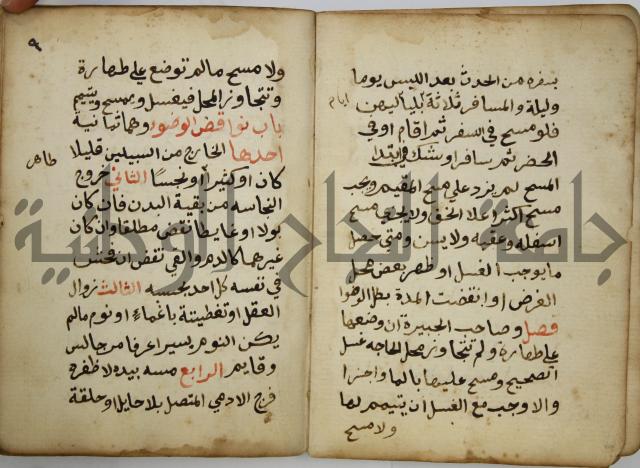 بسفره من الحدث بعد اللبس يوما
وليلة والمسافر ثلاثة بلياليهن
ايام
فلو مسح في السفر ثم اقام او في
الحضر ثم سافر او شك في ابتدا
المسح لم يزد علي مسح المقيم ويجب
مسح اكثر اعلا الخف ولا يجزي مسح
اسفله وعقبه ولا يسن ومتي حصل
ما يوجب الغسل او ظهر بعض محل
الفرض او انقضت المدة بطل الوضوا
فصل وصاحب الجبيرة ان وضعها
علي طهارة ولم تتجاوز محل الحاجه غسل
الصحيح ومسح عليها بالما واجزا
والا وجب مع الغسل ان يتيمم لها
ولا مسح
٩
ولا مسح مالم توضع علي طهارة
وتتجاوز المحل فيغسل ويمسح ويتيمم
باب نواقض الوضوء وهي ثمانية
احدها الخارج من السبيلين قليلا
كان او كثيرا او نجسا الثاني خروج
طاهر
النجاسه من بقية البدن فان كان
بولا او غايطا نقض مطلقا وان كان
غيرهما كالدم والقي نقض ان فحش
في نفسه كل احد بحسبه الثالث زوال
العقل او تغطيتة باغماء او نوم مالم
يكن النوم يسير اعرفا من جالس
وقايم الرابع مسه بيده لا ظفره
فرج الادمي المتصل بلا حايل او حلقة
جامعة النجاح الوطنية